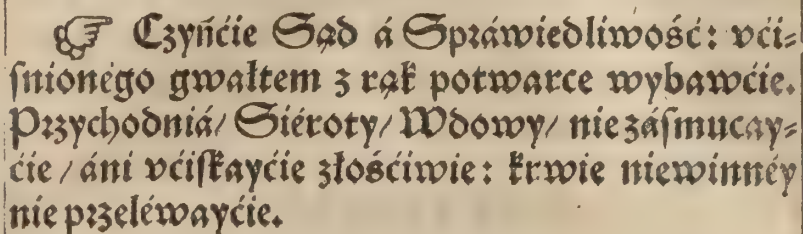 ☞ Czyńćie Sąd á Spráwiedliwość: vći⸗
ſnionégo gwałtem z rąk potwarce wybawćie.
Przychodniá/ Siéroty/ Wdowy/ nie záſmucay⸗
ćie / áni vćiſkayćie złośćiwie: krwie niewinnéy
nie przeléwayćie.